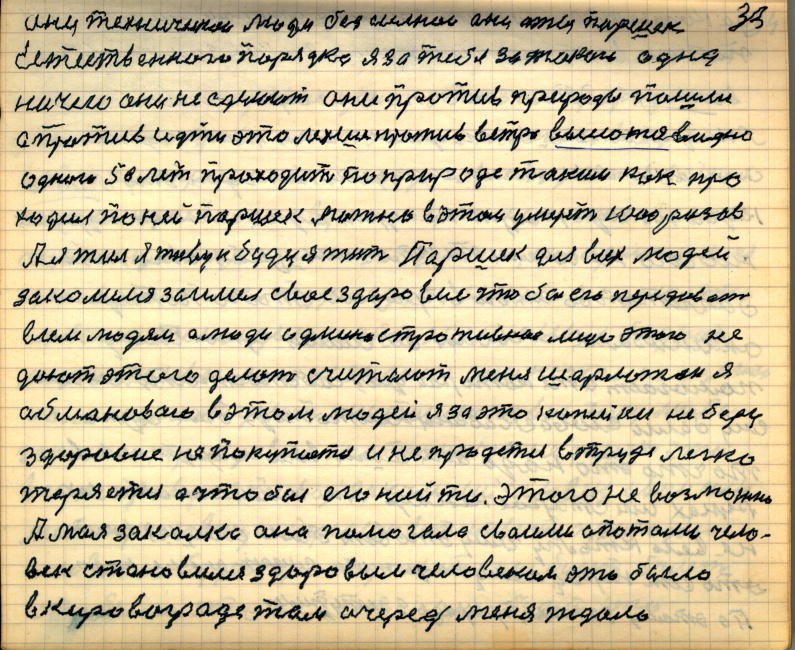 33
они технически люди бессильно они эти паршек
Естественного порядка я за тебя за такого одна
ничего они не сделают они против природы пошли
а против идти это лехше против ветра высота видно
одного 58 лет проходит по природе таким как про
ходил по ней паршек можно в этом умереть 1000 разов
А я жил я живу и буду я жить Паршек для всех людей
закомился занимел свое здоровие чтобы его передовать
всем людям а люди административное лицо этого не
дают этого делать считают меня шарлотан я
обмановаю в этом людей я за это копейки не беру
здоровие не покупается и не продется в труде легко
теряется а чтобы его найти. Этого не возможно
А моя закалка она помогала своими опотали чело-
век становился здоровым человеком это было
в кировограде там очередь меня ждала